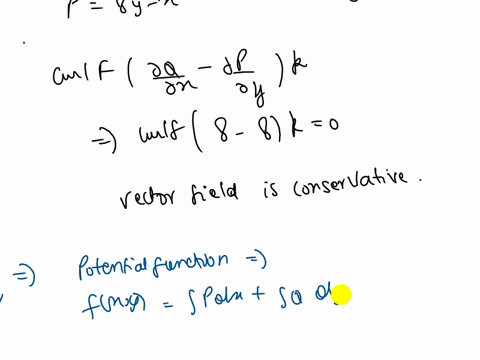 P = 8y - x
curl F ( ∂Q/∂x - ∂P/∂y ) k
=) curlf ( 8 - 8 ) k = 0
vector field is conservative .
=) Potential function =)
f(x,y) = ∫ P dx + ∫ Q dy